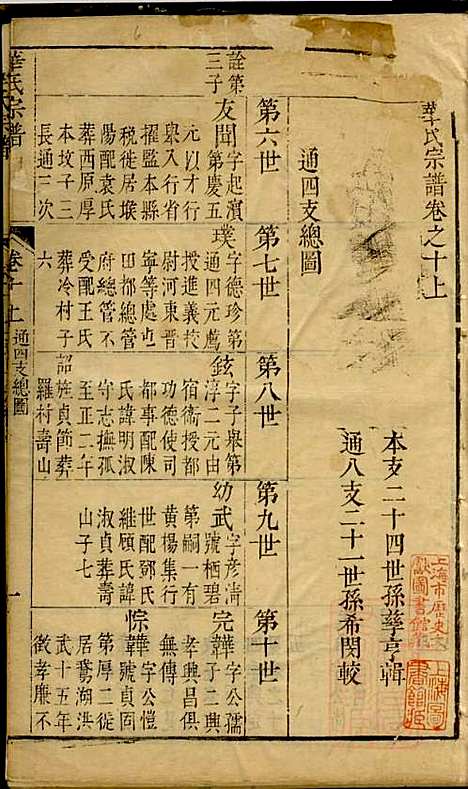 華氏宗譜卷之十上
本支二十四世孫孳亨輯
通八支二十一世孫希閔較
通四支總圖
第六世
第七世
第八世
第九世
第十世
詮第三子
友聞
字起濱
第慶五
元以才行
舉入行省
擢監本縣
税徙居堠
陽配袁氏
葬西原厚
本坟子三
長通三次
璞
字德珍第
通四元薦
投進義校
尉河東晋
寧等處屯
田都總管
府總管不
受配王氏
葬冷村子
六
鉉
字子舉第
淳二元由
宿衛授都
功德使司
都事配陳
氏諱明淑
守志撫孤
至正二年
詔旌貞節葬
羅村壽山
幼武
字彦清
號栖碧
第嗣一有
黄楊集行
世配鄧氏
繼顧氏諱
淑貞葬壽
山子七
完韡
字公孺
子二興
孝興昌俱
無傳
悰韡
字公愷
號貞固
第厚二徙
居鵝湖洪
武十五年
徵孝廉不
華氏宗譜
卷十上
通四支總圖
一
上海市歷史文獻圖書館藏
上海圖書館藏